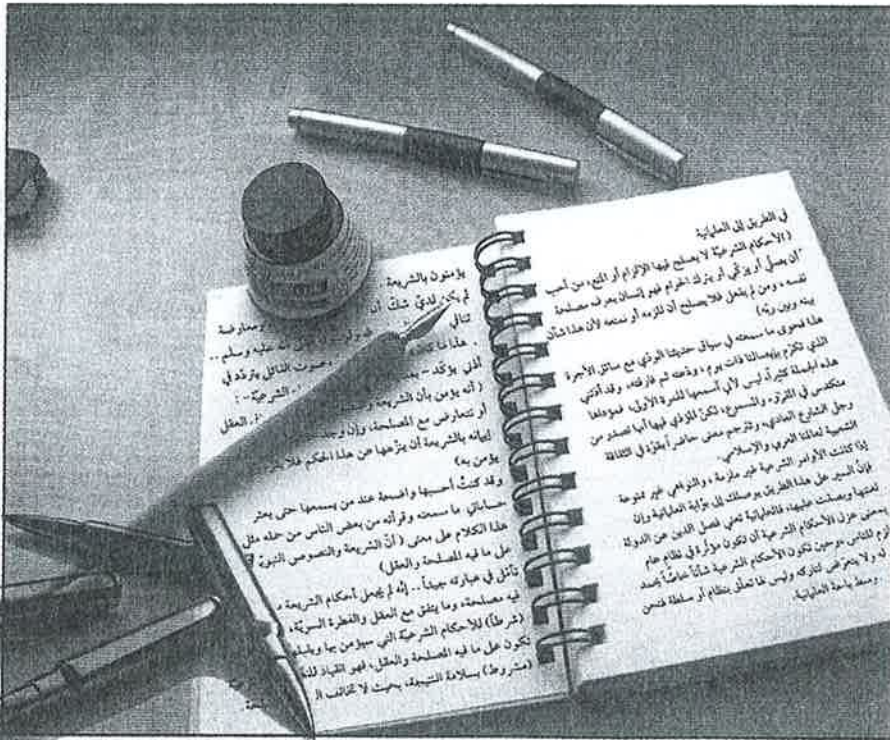 في الطريق إلى العلمانية
( الأحكام الشرعيّة لا يصلح فيها الإلزام أو المنع، من أحب
أن يصلي أو يزكّي أو يترك الحرام فهو إنسان يعرف مصلحة
نفسه، ومن لم يفعل فلا يصلح أن نلزمه أو نمنعه لأن هذا شأن
بينه وبين ربّه)
هذا فحوى ما سمعته في سياق حديثنا الودّي مع سائق الأجرة
الذي تكرّم بإيصالنا ذات يوم، ودّعته ثم فارقته، وقد آذتني
هذه الجملة كثيراً، ليس لأني أسمعها للمرة الأولى، فمؤداها
متكدس في المقروء والمسموع، لكنّ المؤذي فيها أنها تصدر من
رجل الشارع العادي، وتترجم معنى حاضراً بقوّة في الثقافة
الشعبية لعالمنا العربي والإسلامي.
إذا كانت الأوامر الشرعية غير ملزمة، والنواهي غير ممنوعة
فإنّ السير على هذا الطريق يوصلك إلى بوّابة العلمانية وإن
لعنتها وبصقت عليها، فالعلمانية تعني فصل الدين عن الدولة
بمعنى عزل الأحكام الشرعية أن تكون مؤثرة في نظام عام
للناس فحين تكون الأحكام الشرعية شأناً خاصّاً
ولا يتعرّض لتاركه وليس لها تعلّق بنظام أو سلطة فنحن
وسط باحة العلمانية.
يؤمنون بالشريعة.
لم يكن لديّ شكّ أن ومعارضة
لله عليه وسلم ..
هذا ما وصوت القائل يتردّد في
أذني يؤكّد - الشرعيّة - :
( أنه يؤمن بأن الشريعة العقل
أو تتعارض مع المصلحة، وإن وجد
إيمانه بالشريعة أن ينزّهها عن هذا الحكم فلا
يؤمن به)
وقد كنتُ أحسبها واضحة عند من يسمعها حتى بعثر
حساباتي ما سمعته وقرأته من بعض الناس من حمله مثل
هذا الكلام على معنى ( أنّ الشريعة والنصوص النبويّة
على ما فيه المصلحة والعقل)
تأمّل في عبارته جيداً .. إنّه لم يجعل أحكام الشريعة
فيه مصلحة، وما يتفق مع العقل والفطرة السويّة،
(شرطاً) للأحكام الشرعيّة التي سيؤمن بها
تكون على ما فيه المصلحة والعقل، فهو انقياد
(مشروط) بسلامة النتيجة، بحيث لا تخالف